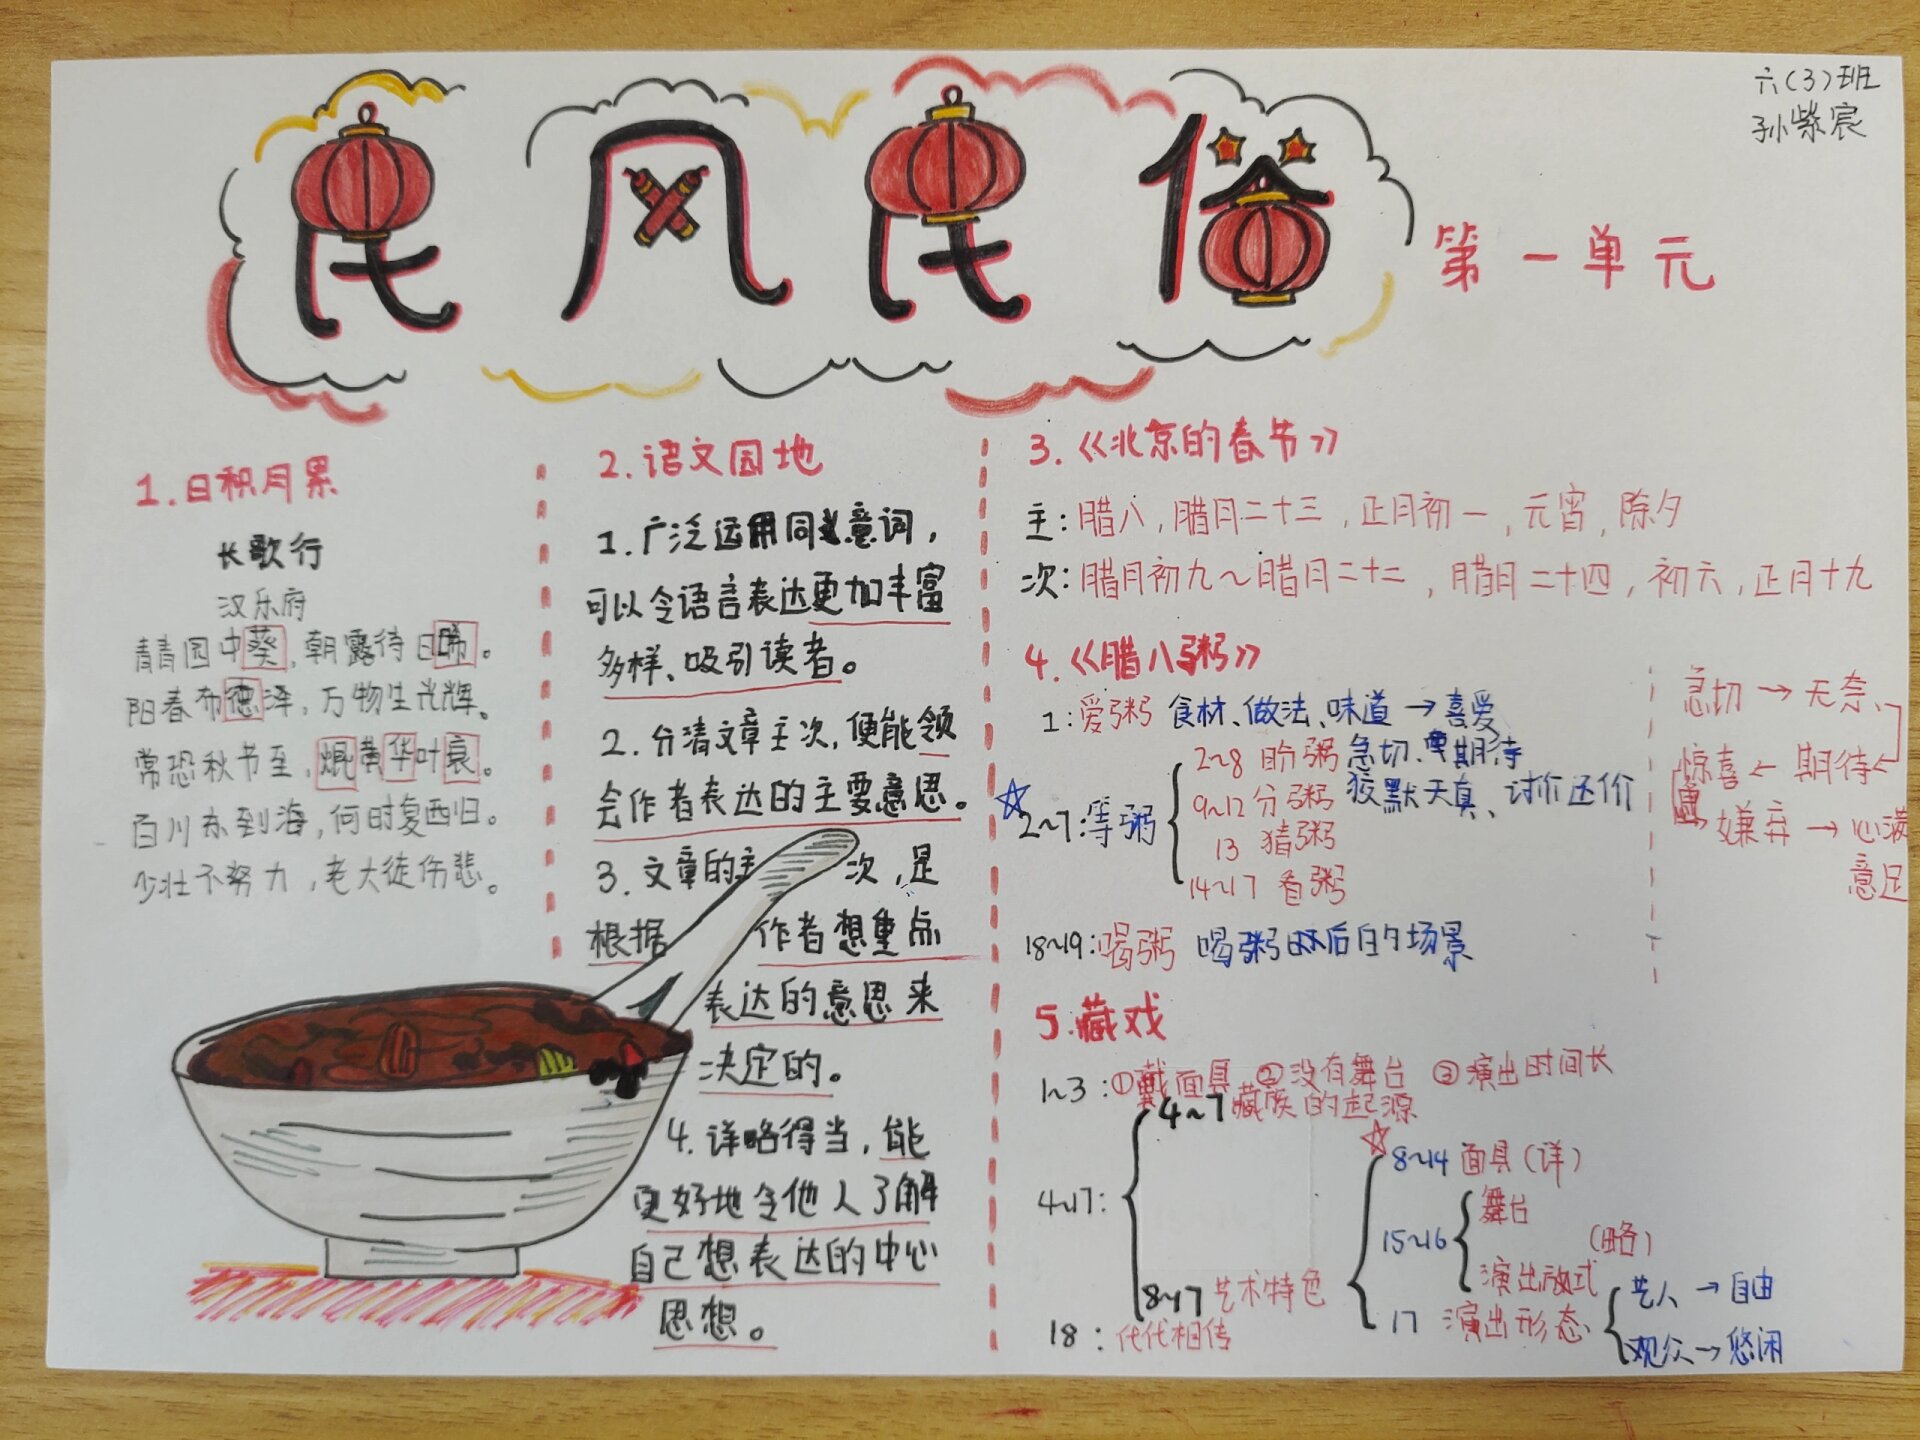 六(3)班
孙紫宸
民风民俗
第一单元
1.日积月累
长歌行
汉乐府
青青园中葵,朝露待日晞。
阳春布德泽,万物生光辉。
常恐秋节至,焜黄华叶衰。
百川东到海,何时复西归。
少壮不努力,老大徒伤悲。
2.语文园地
1.广泛运用同义意词,
可以令语言表达更加丰富
多样、吸引读者。
2.分清文章主次,便能领
会作者表达的主要意思。
3.文章的主次,是
根据作者想重点
表达的意思来
决定的。
4.详略得当,能
更好地令他人了解
自己想表达的中心
思想。
3.《北京的春节》
主:腊八,腊月二十三,正月初一,元宵,除夕
次:腊月初九~腊月二十二,腊月二十四,初六,正月十九
4.《腊八粥》
1:爱粥 食材、做法、味道→喜爱
☆2~7:等粥
2~8 盼粥 急切、期待
9~12 分粥 狡默天真、讨价还价
13 猜粥
14~17 看粥
18~19:喝粥 喝粥时后的场景
急切→无奈、
惊喜←期待←
嫌弃→心满
意足
5.藏戏
1~3:①戴面具 ②没有舞台 ③演出时间长
4~17:
4~7 藏族的起源
8~17 艺术特色
☆8~14 面具(详)
15~16
舞台
(略)
演出放式
17 演出形态
艺人→自由
观众→悠闲
18:代代相传